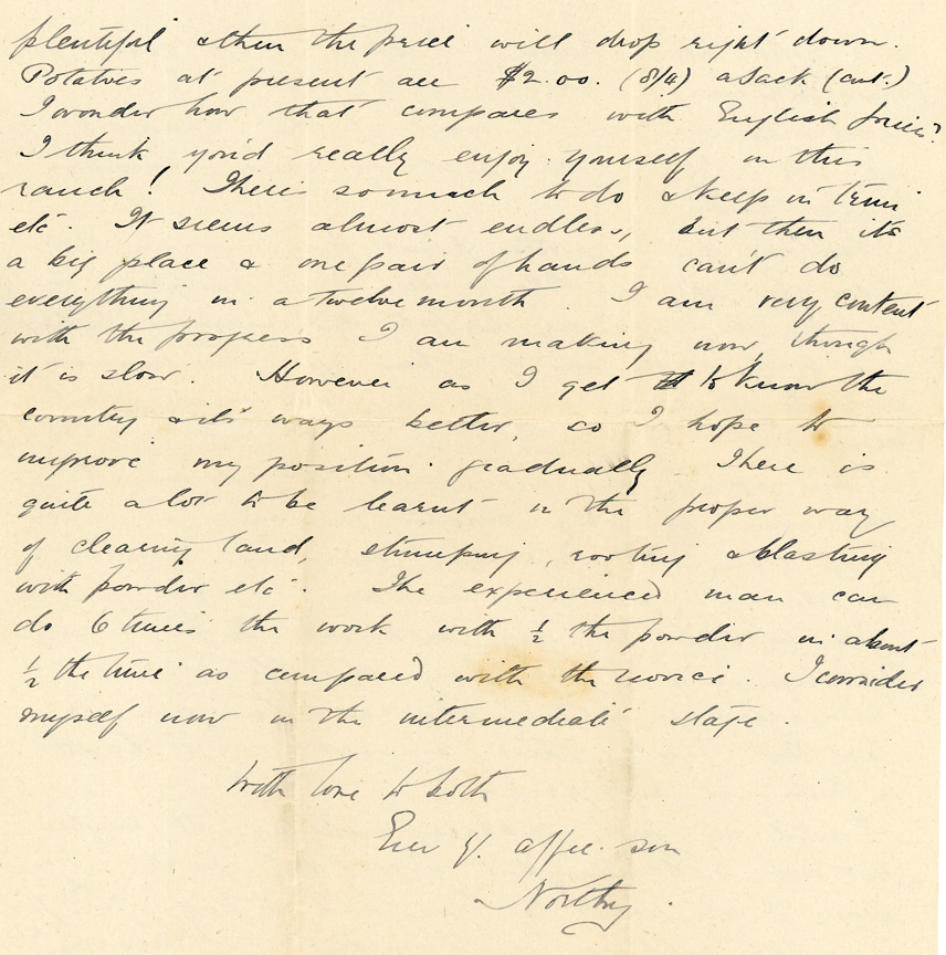 plentiful & then the price will drop right down.
Potatoes at present are $2.00. (8/4) a sack (cwt.)
I wonder how that compares with English prices?
I think you'd really enjoy yourself on this
ranch! There is so much to do & keep in trim
etc. It seems almost endless, but then it's
a big place & one pair of hands can't do
everything in a twelve month. I am very content
with the progress I am making now, though
it is slow. However as I get to know the
country & its ways better, so I hope to
improve my position gradually. There is
quite a lot to be learnt in the proper way
of clearing land, stumping, rooting & blasting
with powder etc. The experienced man can
do 6 times the work with ½ the powder in about
½ the time as compared with the novice. I consider
myself now in the intermediate stage.
With love to both
Ever yr. affec. son